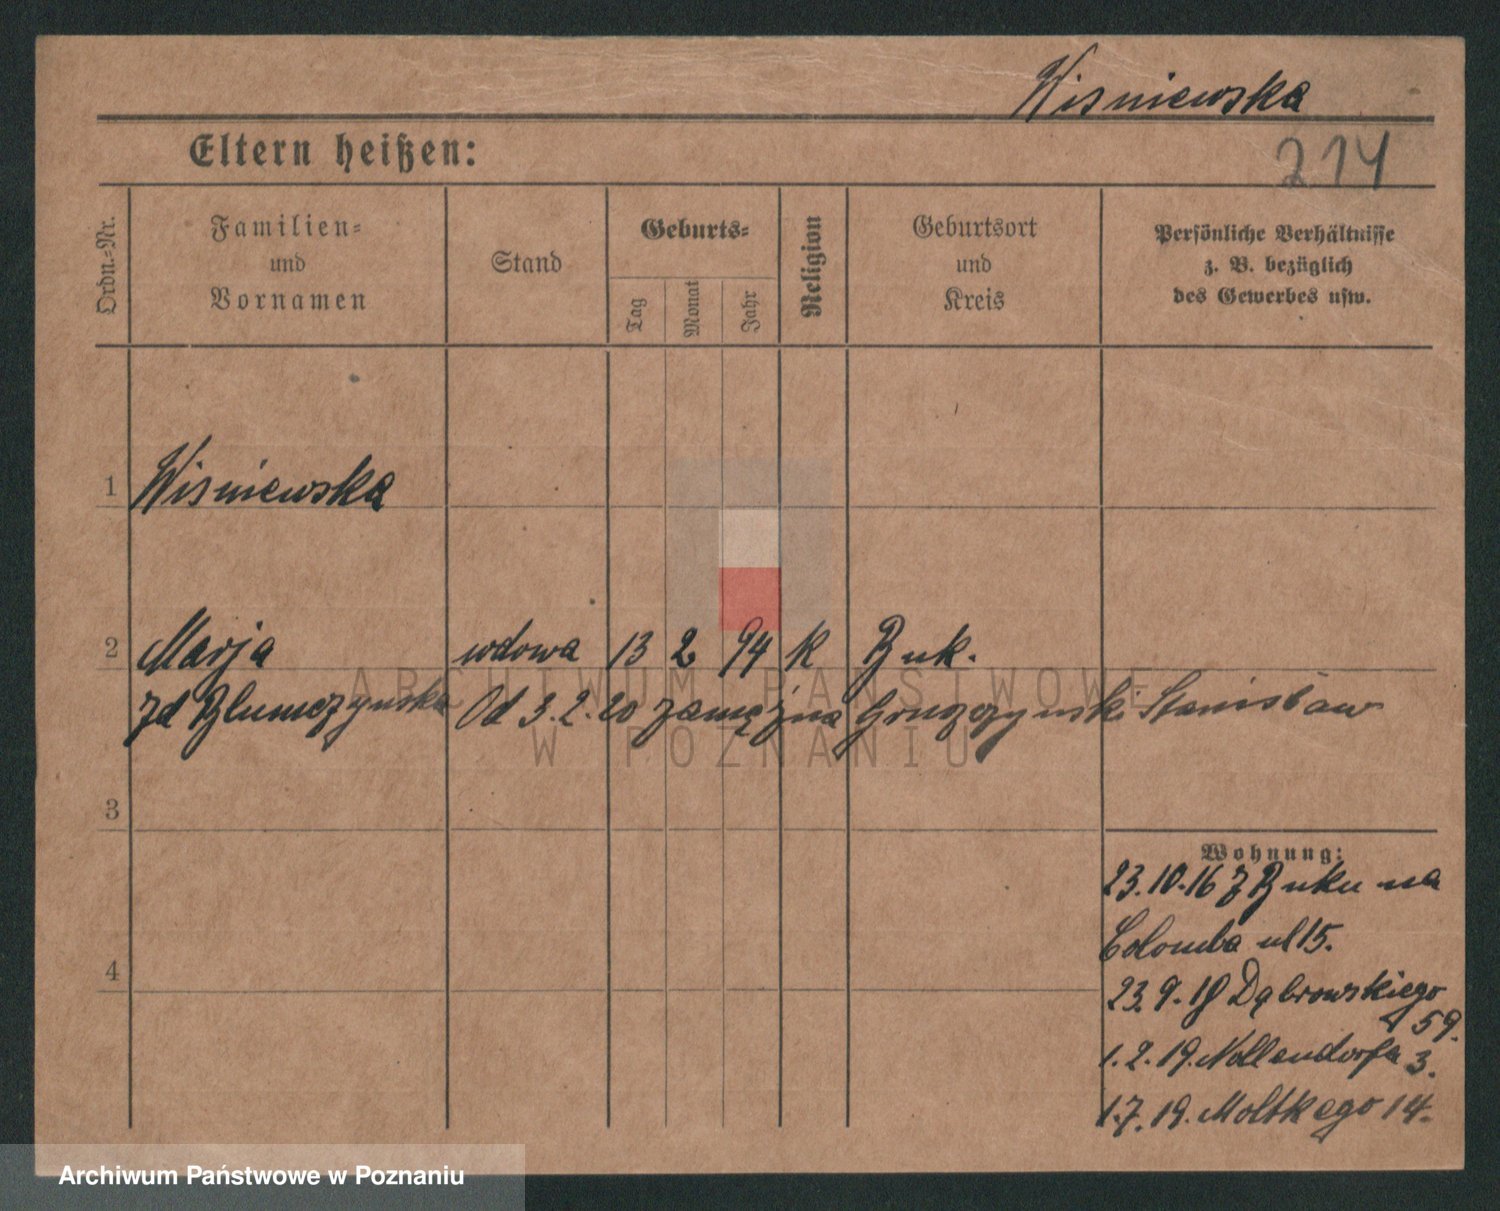 Wisniewska
Eltern heißen:
214
Ordn.-Nr.
Familien-
und
Vornamen
Stand
Geburts-
Tag
Monat
Jahr
Religion
Geburtsort
und
Kreis
Persönliche Verhältnisse
z. B. bezüglich
des Gewerbes usw.
1 Wisniewska
2 Marja wdowa 13 2 94 k Buk.
zd Blumczynska Od 3.2.20 zamężna Gruszczynski Stanisław
3
4
Wohnung:
23.10.16 z Buku na
Colomba ul 15.
23.9.18 Dąbrowskiego
59.
1.2.19. Nollendorfa 3.
1.7.19. Moltkego 14.
ARCHIWUM PAŃSTWOWE
W POZNANIU
Archiwum Państwowe w Poznaniu